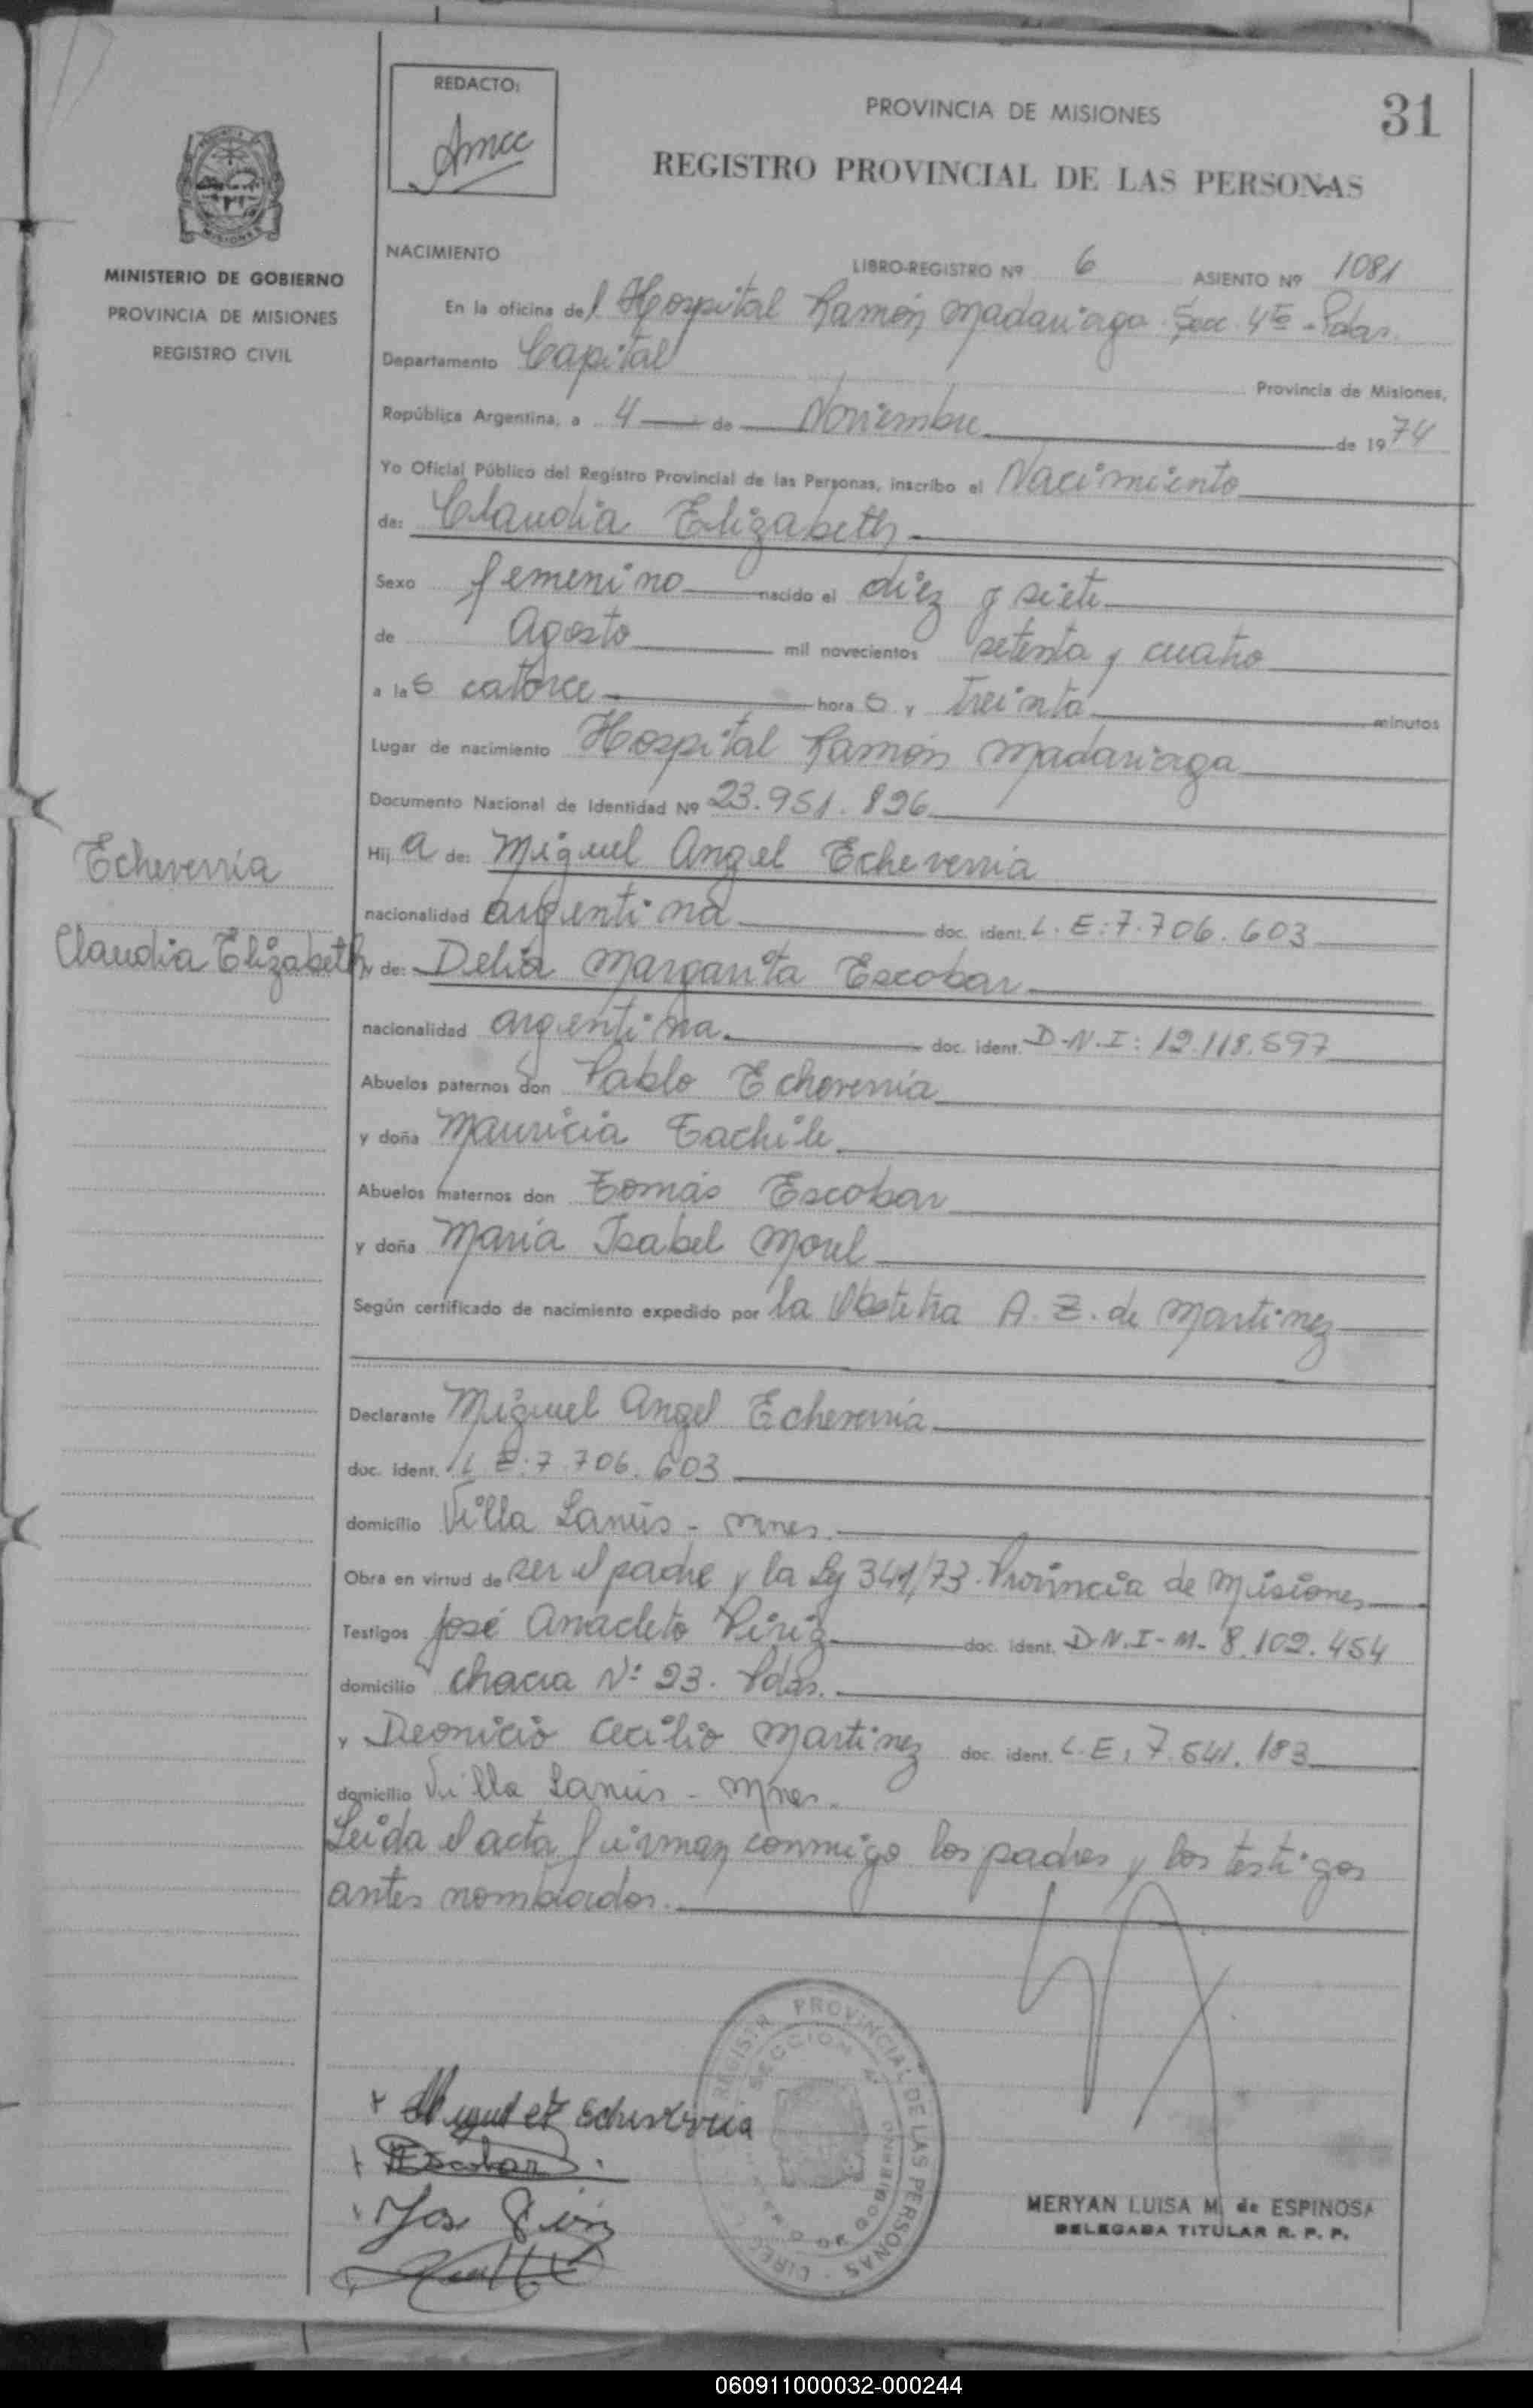 REDACTO:
Amcc
PROVINCIA DE MISIONES
31
REGISTRO PROVINCIAL DE LAS PERSONAS
MINISTERIO DE GOBIERNO
PROVINCIA DE MISIONES
REGISTRO CIVIL
NACIMIENTO
LIBRO-REGISTRO Nº 6 ASIENTO Nº 1081
En la oficina del Hospital Ramón Madariaga Secc. 4ta - Pdas.
Departamento Capital Provincia de Misiones,
República Argentina, a 4 de Noviembre de 1974
Yo Oficial Público del Registro Provincial de las Personas, inscribo el Nacimiento
de: Claudia Elizabeth
Sexo femenino nacido el diez y siete
de Agosto mil novecientos setenta y cuatro
a las catorce horas y treinta minutos
Lugar de nacimiento Hospital Ramón Madariaga
Documento Nacional de Identidad Nº 23.951.896
Hija de: Miguel Angel Echeverria
Echeverría
nacionalidad argentina doc. ident. L.E:7.706.603
Claudia Elizabeth
y de: Delia Margarita Escobar
nacionalidad argentina doc. ident. D.N.I: 12.118.597
Abuelos paternos don Pablo Echeverria
y doña Mauricia Tachile
Abuelos maternos don Tomás Escobar
y doña María Isabel Morel
Según certificado de nacimiento expedido por la Obstetra A. Z. de Martinez
Declarante Miguel Angel Echeverria
doc. ident. L E:7.706.603
domicilio Villa Lanús - Mnes.
Obra en virtud de ser el padre y la Ley 341/73. Provincia de Misiones
Testigos José Anacleto Piriz doc. ident. D.N.I-M- 8.102.454
domicilio chacra Nº 23. Pdas.
y Deonicio Cecilio Martinez doc. ident. L.E: 7.541.183
domicilio Villa Lanús - Mnes.
Leida el acta firman conmigo los padres y los testigos
antes nombrados.
Miguel A Echeverria
Escobar
REGISTRO PROVINCIAL DE LAS PERSONAS
SECCION 4ª
MERYAN LUISA M. de ESPINOSA
DELEGADA TITULAR R. P. P.
060911000032-000244